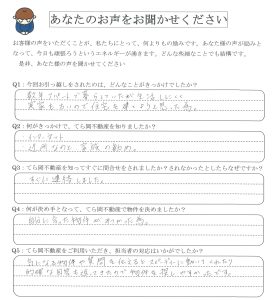 あなたのお声をお聞かせください
お客様の声をいただくことが、私たちにとって、何よりもの励みです。あなた様の声が励みと
なって、今日も頑張ろうというエネルギーが湧きます。どんな些細なことでも結構です。
是非、あなた様の声をお聞かせください。
Q1：今回お引っ越しをされたのは、どんなことがきっかけでしたか？
数年アパートで暮らしていたが生活しにくく
実家も古いので住宅を
Q2：何がきっかけで、てら岡不動産を知りましたか？
インターネット
近所なのと、家族の勧め。
Q3：てら岡不動産を知ってすぐに問合せをされましたか？されなかったとしたらなぜですか？
すぐに連絡しました。
Q4：何が決め手となって、てら岡不動産で物件を決めましたか？
自分に合った物件がみつかった為。
Q5：てら岡不動産をご利用いただき、担当者の対応はいかがでしたか？
気になる物件や質問を伝えるとスピーディに動いてくれたり
的確な目安も送ってきたので物件を探しやすかったです。